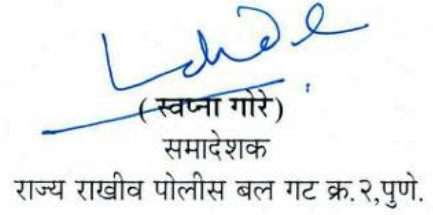 ( स्वप्ना गोरे)
समादेशक
राज्य राखीव पोलीस बल गट क्र.२,पुणे.